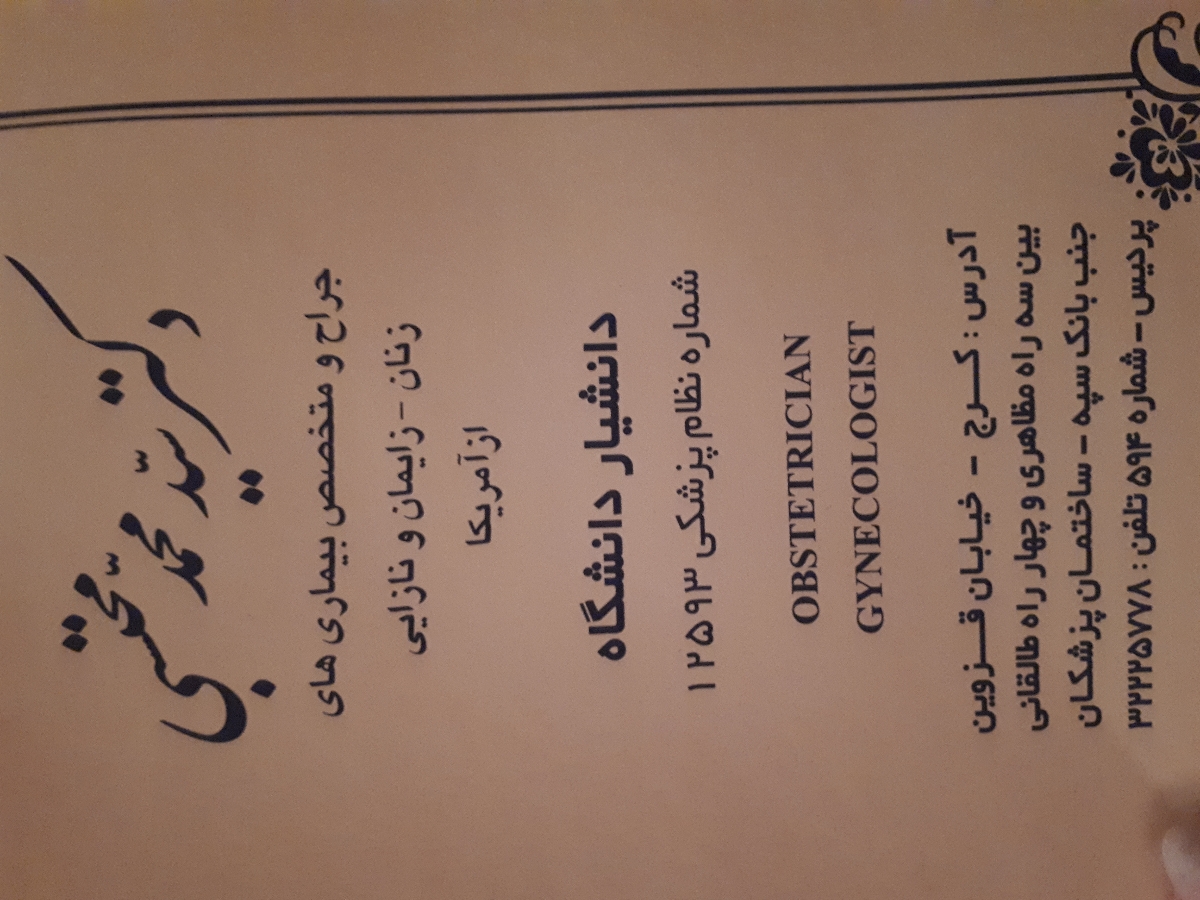 دکتر سید محمد مجتبی
جراح و متخصص بیماری های
زنان - زایمان و نازایی
از آمریکا
دانشیار دانشگاه
شماره نظام پزشکی ۱۲۵۹۳
OBSTETRICIAN
GYNECOLOGIST
آدرس : کرج - خیابان قزوین
بین سه راه مظاهری و چهار راه طالقانی
جنب بانک سپه - ساختمان پزشکان
پردیس - شماره ۵۹۴ تلفن : ۳۲۲۲۵۷۷۸